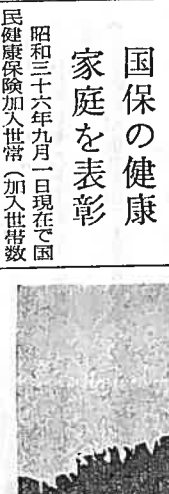 国保の健康
家庭を表彰
昭和三十六年九月一日現在で国
民健康保険加入世帯（加入世帯数